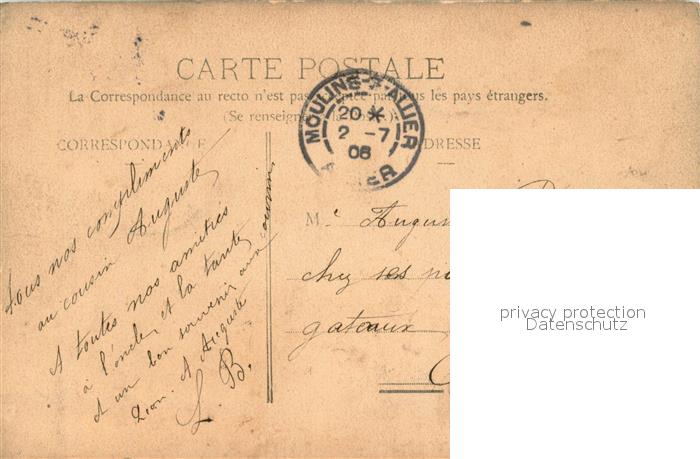 CARTE POSTALE
La Correspondance au recto n'est pas acceptée par tous les pays étrangers.
(Se renseigner à la Poste)
CORRESPONDANCE
ADRESSE
MOULINS-S-ALLIER
20 *
2 -7
06
ALLIER
Tous nos compliments
au cousin Auguste
A toutes nos amitiés
à l'oncle et la tante
et un bon souvenir aux cousins
Léon et Auguste
L. B.
M. Augus
chez ses
gateaux
privacy protection
Datenschutz